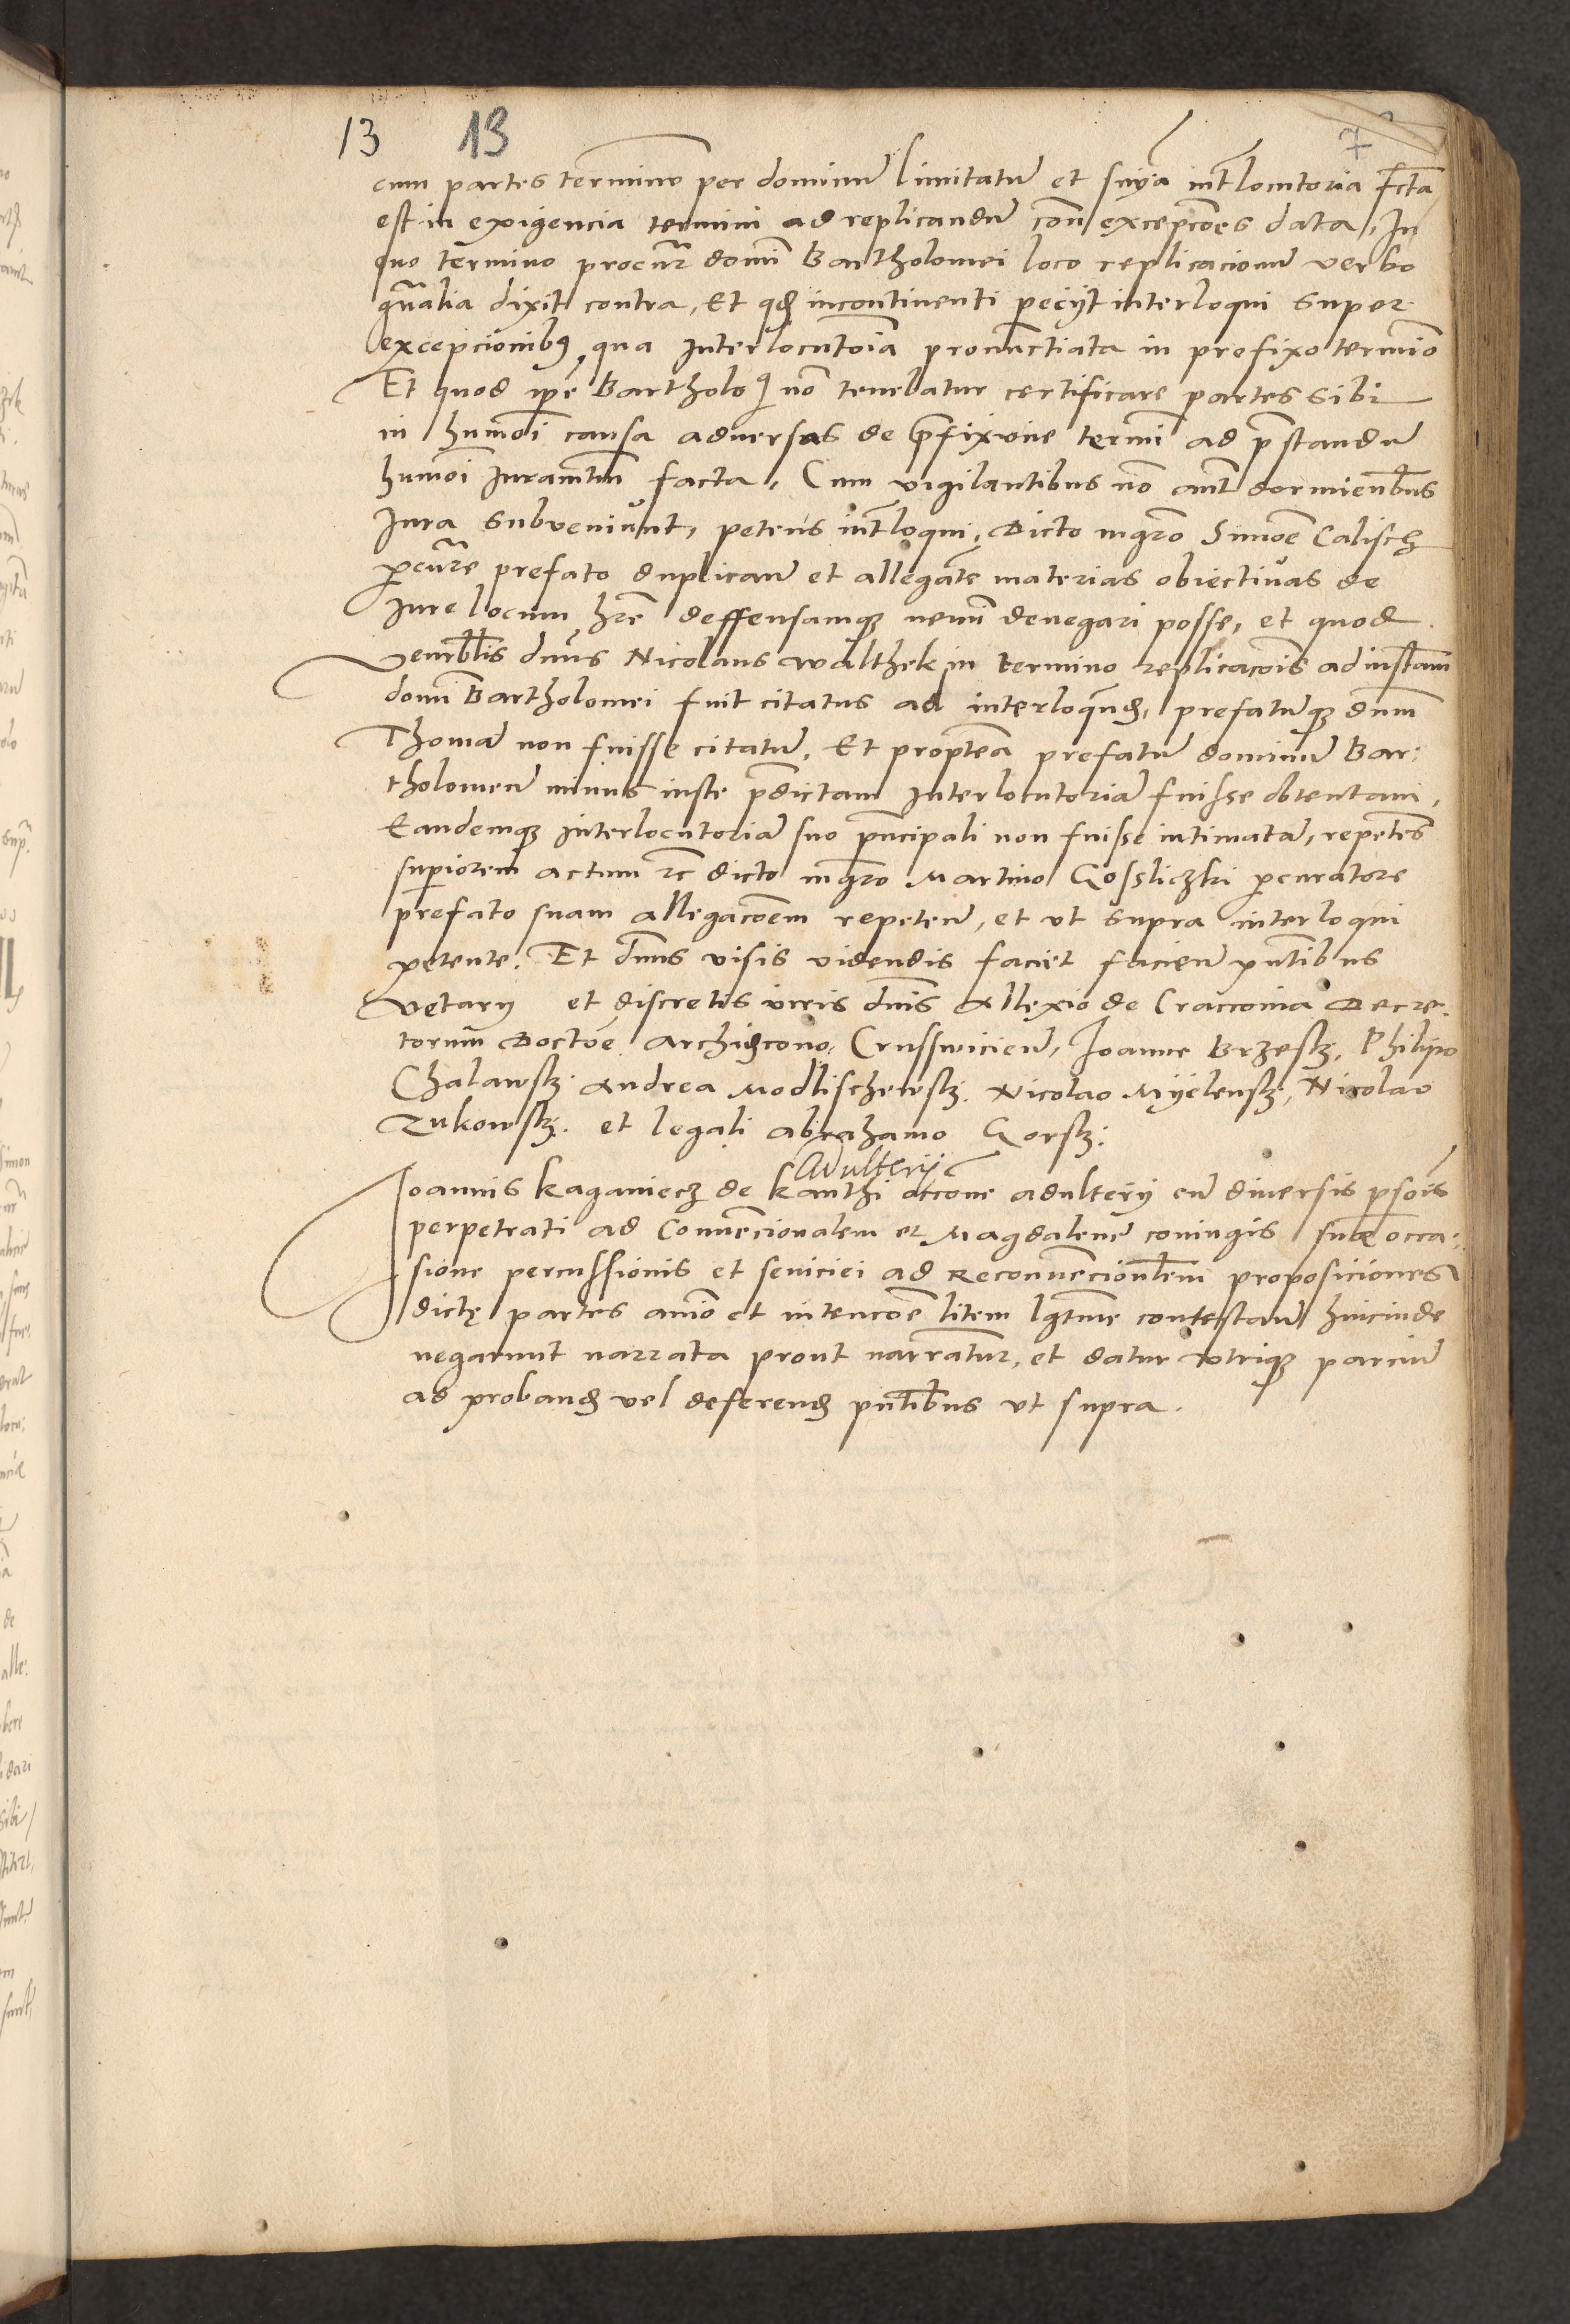 13 13 7
cum partes terminū per dominū limitatū et snỹa int̃locutoria fcta
est in exigencia termini ad replicandū con̄ excepcões data, In
quo termino procur̃ domī Bartholomei loco replicacionū verbo
gn̄alia dixit contra, Et qđ incontinenti peciyt interloqui super
excepcionibꝰ, qua Interlocutoīa pronunctiata in prefixo termīo
Et quod ip̄e Bartholoꝰ nō tenebatur certificare partes sibi
in hmōi causa aduersas de p̄fixione termī ad p̄standū
humōi Iuramtm̄ facta, Cum vigilantibus nō aut̄ dormientibus
Iura subueniunt, petens int̃loqui, Dicto mgr̄o Simoē Calisch
ꝓcur̃e prefato duplican̄ et allegan̄te materias obiectiuas de
Iure locum hr̄e deffensamqꝫ nemī denegari posse, et quod
Venr̃blis dn̄us Nicolaus Walthek in termino replicacōis ad instam̄
domī Bartholomei fuit citatus ad interloquēđ, prefatumqꝫ dn̄m
Thomā non fuisse citatū, Et propt̄ea prefatū dominū Bar:
tholomeū minus iuste p̄dictam Interlocutoriā fuisse obtentam,
Eandemqꝫ Interlocutoriā suo prn̄cipali non fuisse intimatā, repetēs
suꝑiorem actum ꝛc dicto mgr̄o Martino Gosliczki ꝓcuratore
prefato suam allegacōem repeten̄, et vt supra interloqui
petente. Et dn̄us visis videndis faciet facien̄ pn̄tibus
et discretis viris dn̄is Allexio de Cracouia Decre
torum Doctoē Archidcono Crusswicien̄, Joanne Brzesky, Philipo
Chalawsky Andrea Modlischewsky. Nicolao Myelensky, Nicolao
Zukowsky. et legali abrahamo Gorsky:
Adulterij
Joannis Kaganiecz de Kanthi accōne adulterij cū diuersis ꝑsōis
perpetrati ad Conuēcionalem et Magdalene coniugis sue occa:
sione percussionis et seuiciei ad Reconuēciont̃em proposiciones
dictę partes anīo et intencōe litem lgt̄me contestan̄ hincinde
negarunt narrata prout narrantur, et datur vtriqꝫ parciū
ad probanđ vel deferenđ pn̄tibus vt supra.